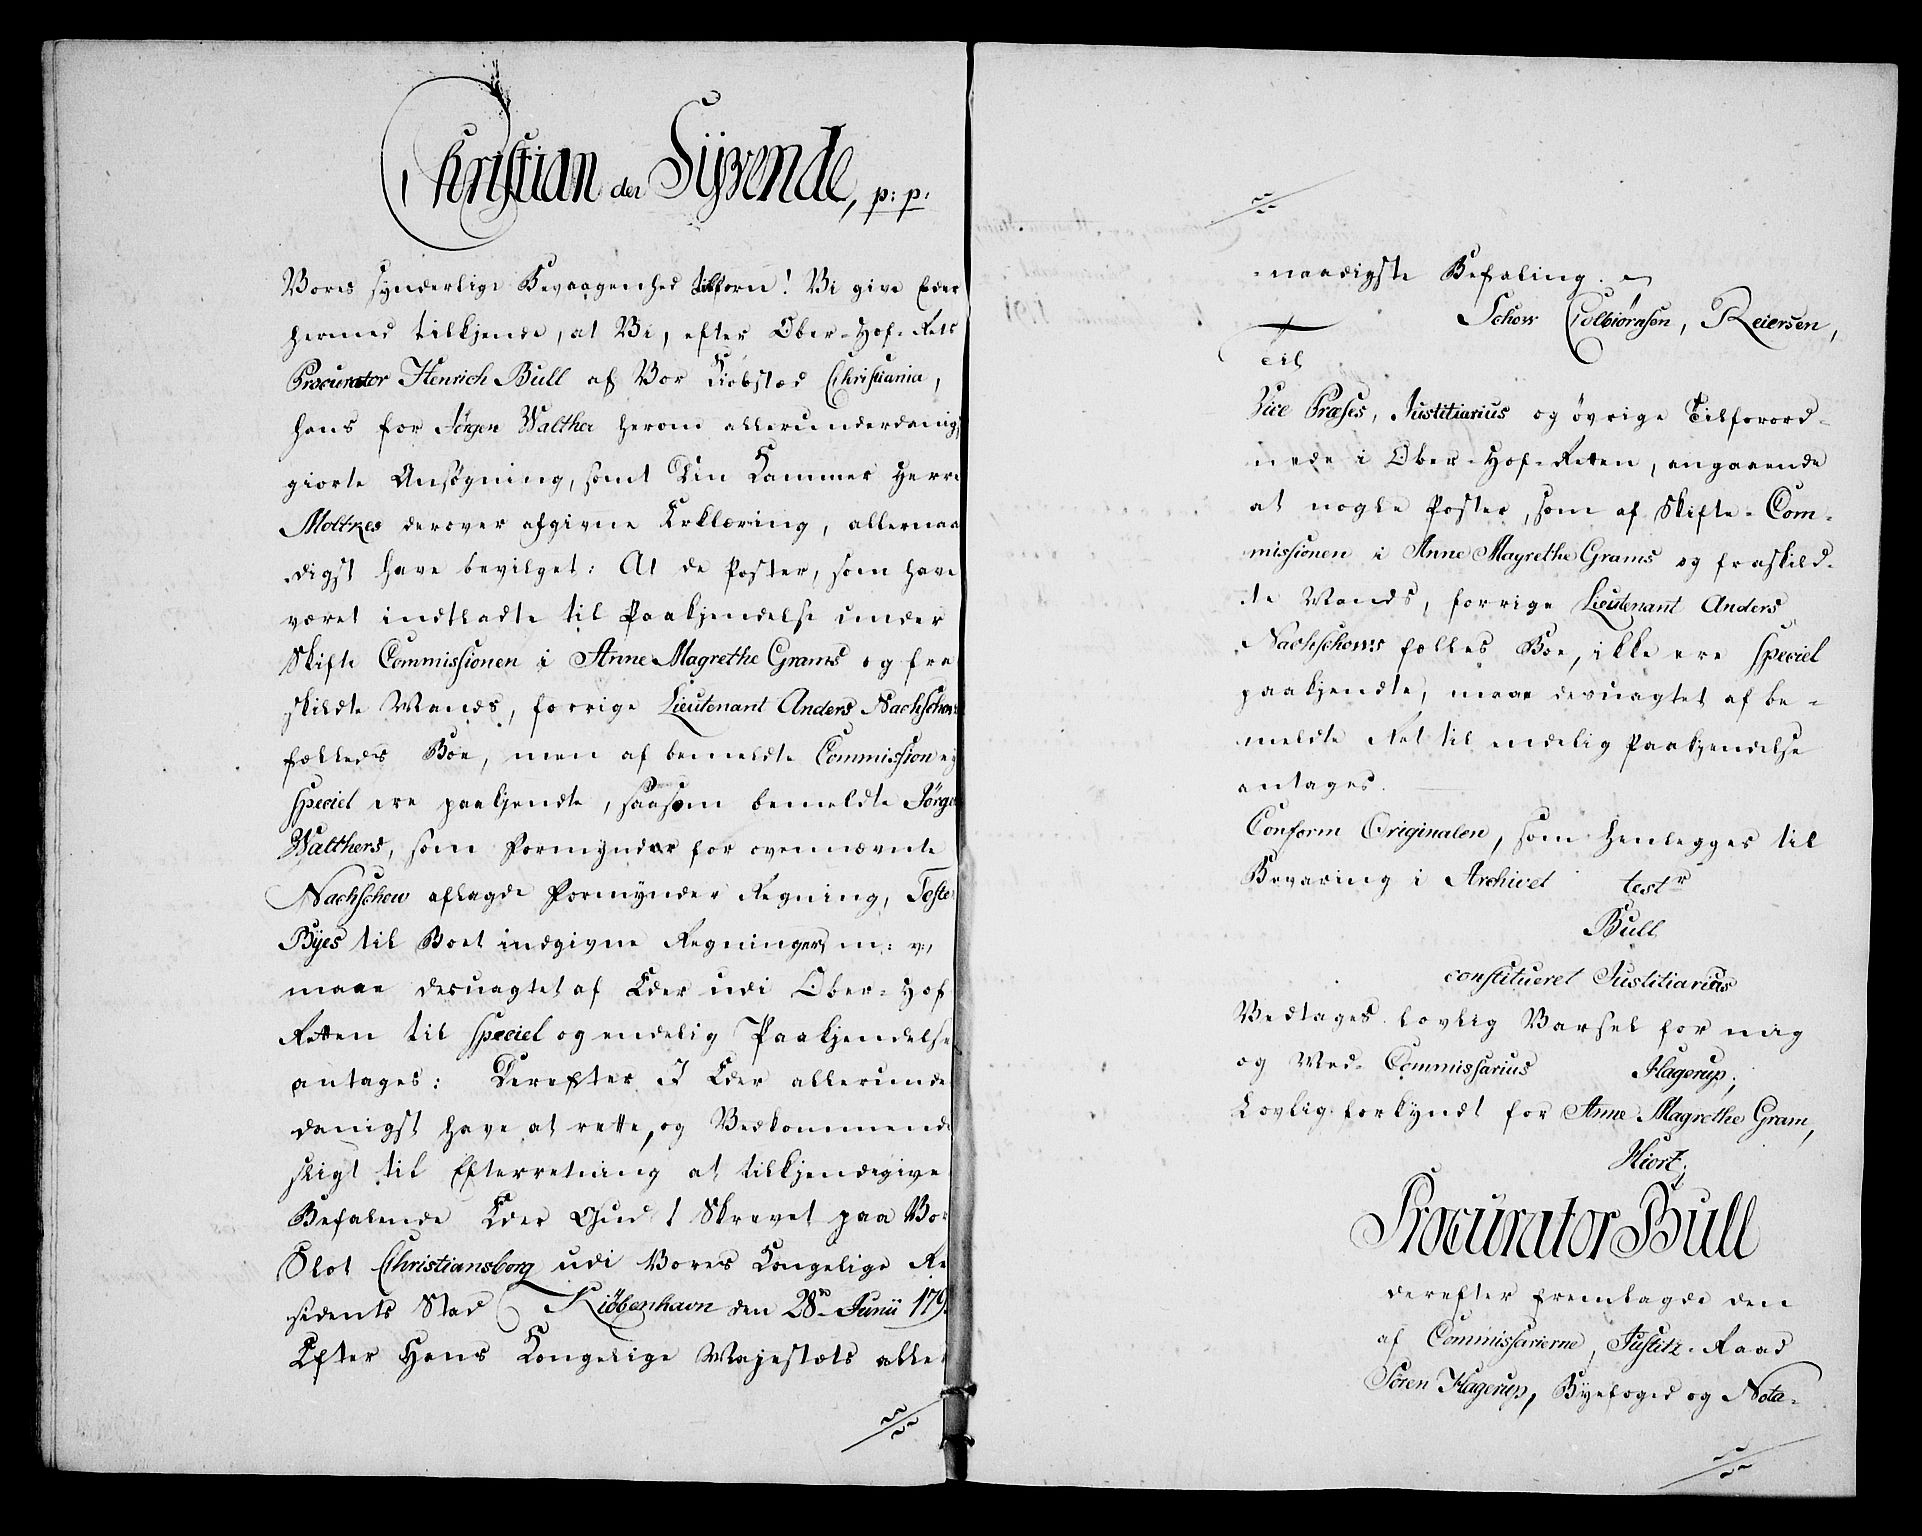 Christian der Syvende, p: p:
Vores synderlige Bevaagenhed tilforn! Vi give Eder
hermed tilkjende, at Vi, efter Ober-Hof-Rets
Procurator Henrich Bull af Vor Kiøbstæd Christiania,
hans for Jørgen Walther herom allerunderdanigst
giorte Ansøgning, samt Din Kammer Herre
Moltkes derover afgivne Erklæring, allernaa
digst have bevilget: At de Poster, som have
været indtladte til Paakjendelse under
Skifte Commissionen i Anne Magrethe Grams og fra
skildte Mands, forrige Lieutenant Anders Nachschows
fælleds Boe, men af bemeldte Commission ej
speciel ere paakjendte, saasom bemeldte Jørgen
Walthers, som Formynder for ovennævnte
Nachschow aflagde Formynder Regning,
Byes til Boet indgivne Regninger m: v:,
maae desuagtet af Eder udi Ober-Hof
Retten til speciel og endelig Paakjendelse
antages: Derefter I Eder allerunder
danigst have at rette, og Vedkommende
sligt til Efterretning at tilkjendegive
Befalende Eder Gud! Skrevet paa Vor
Slot Christiansborg udi Vores Kongelige Re
sidents Stad Kiøbenhavn den 28de Junii 179
Efter Hans Kongelige Majestæts aller
naadigste Befaling.
Schow Colbiørnsen, Reiersen,
Til
Vice Præses, Justitiarius og øvrige Tilforord-
nede i Ober-Hof-Retten, angaaende
at nogle Poster, som af Skifte-Com-
missionen i Anne Magrethe Grams og fraskild-
te Mands, forrige Lieutenant Anders
Nachschows fælles Boe, ikke ere speciel
paakjendte, maae desuagtet af be-
meldte Ret til endelig Paakjendelse
antages.
Conform Originalen, som henlegges til
Bevaring i Archivet testr
Bull
constitueret Justitiarius
Vedtages lovlig Varsel for mig
og Med-Commissarius Hagerup;
Lovlig forkyndt for Anne Magrethe Gram,
Hiort;
Procurator Bull
derefter fremlagde den
af Commissarierne, Justitz-Raad
Søren Hagerup, Byefoged og Nota-